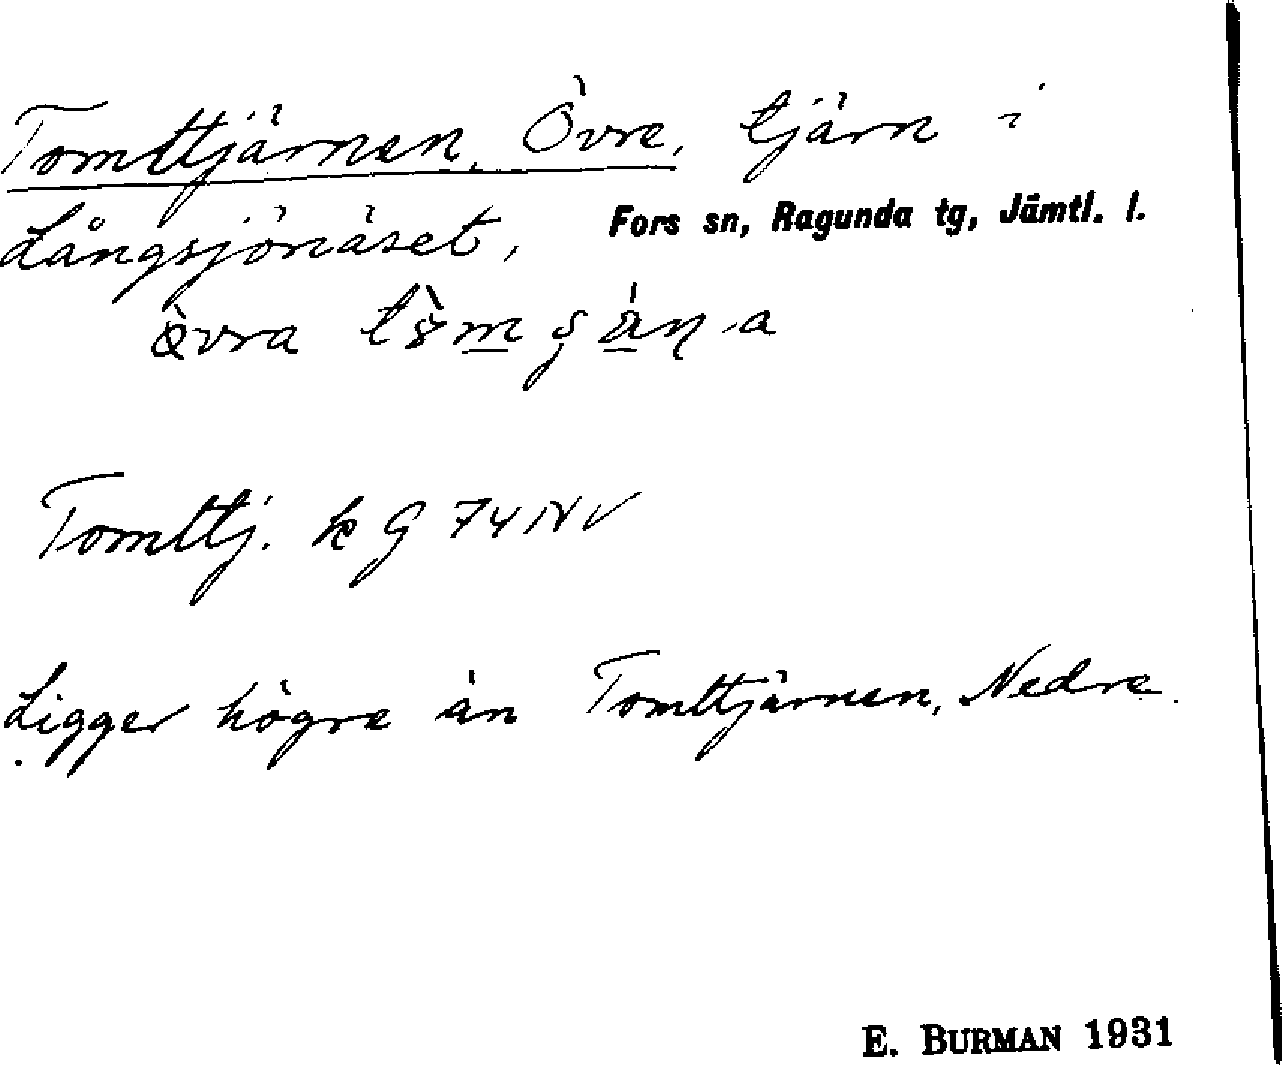 Tomttjärnen, Övre, tjärn i
Långsjönäset, Fors sn, Ragunda tg, Jämtl. l.
Tomttj. k G 74 NV
Ligger högre än Tomttjärnen, Nedre.
E. BURMAN 1931